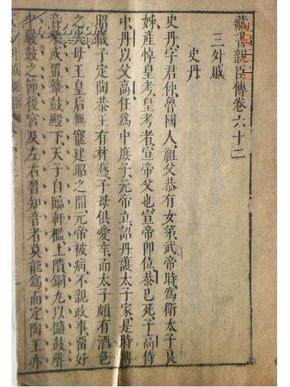 藏書親臣傳卷六十二
三外戚
史丹
史丹字君仲魯國人祖父恭有女弟武帝時為衛太子良
娣產悼皇考皇考者宣帝父也宣帝即位恭已死子高侍
中丹以父高任為中庶子元帝立詔丹護太子家是時傅
昭儀子定陶恭王有材藝子母俱愛幸而太子頗有酒色
之母王皇后無寵建昭之間元帝被病不親政事留好
音樂或置鼙鼓殿下天子自臨軒檻上隤銅丸以擿鼓聲
中嚴鼓之節後宮及左右習知音者莫能為而定陶王亦